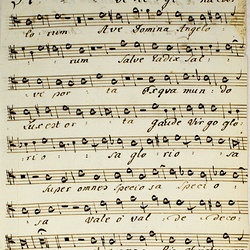 lorum Ave Domina Angelo
rum Salve radix sal
ve porta Exqua mundo
Lux est orta Gaude Virgo glo
rio sa glorio sa
super omnes speciosa speci o
sa Vale ò val de deco